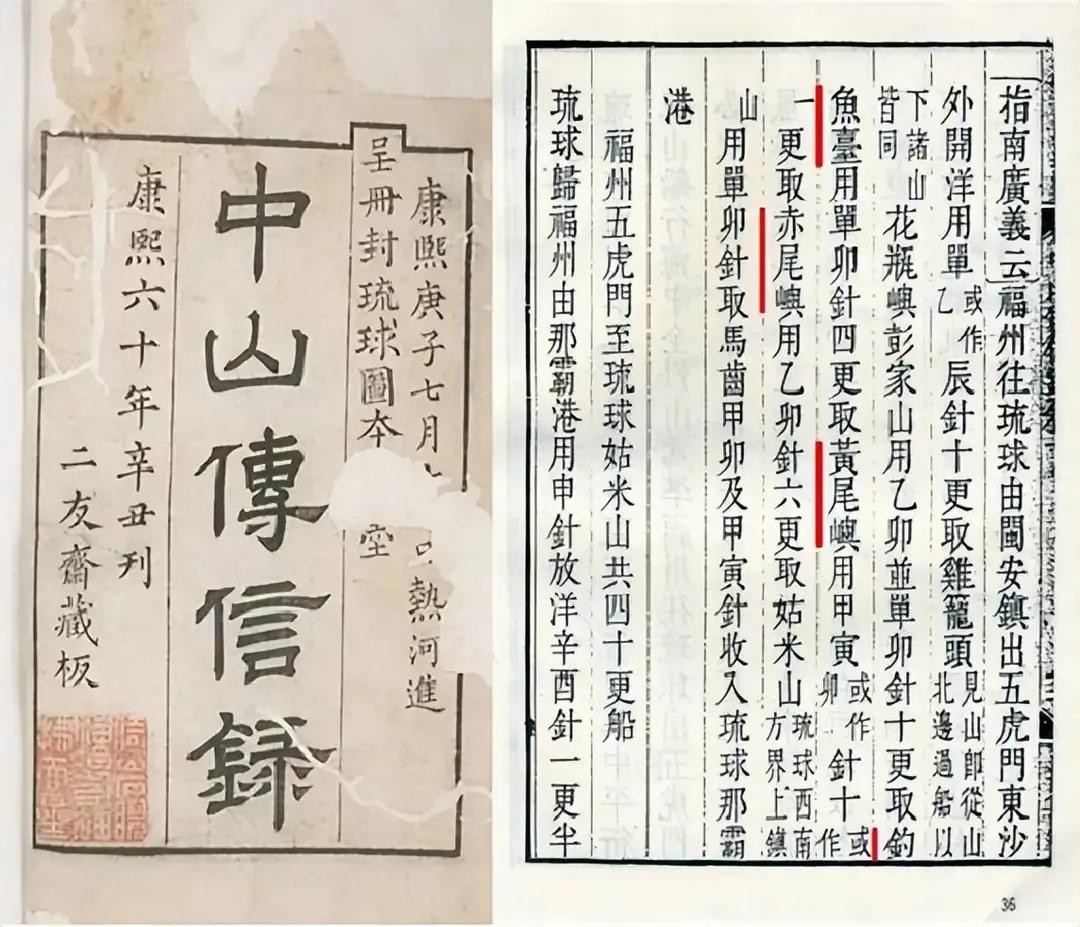 康熙庚子七月熱河進
呈冊封琉球圖本 堂
中山傳信錄
康熙六十年辛丑刊
二友齋藏板
指南廣義云福州往琉球由閩安鎮出五虎門東沙
外開洋用單或作乙辰針十更取雞籠頭見山即從山北邊過船以
下諸山皆同花瓶嶼彭家山用乙卯並單卯針十更取釣
魚臺用單卯針四更取黃尾嶼用甲寅或作卯針十或作
一更取赤尾嶼用乙卯針六更取姑米山琉球西南方界上鎮
山用單卯針取馬齒甲卯及甲寅針收入琉球那霸
港
福州五虎門至琉球姑米山共四十更船
琉球歸福州由那霸港用申針放洋辛酉針一更半
36